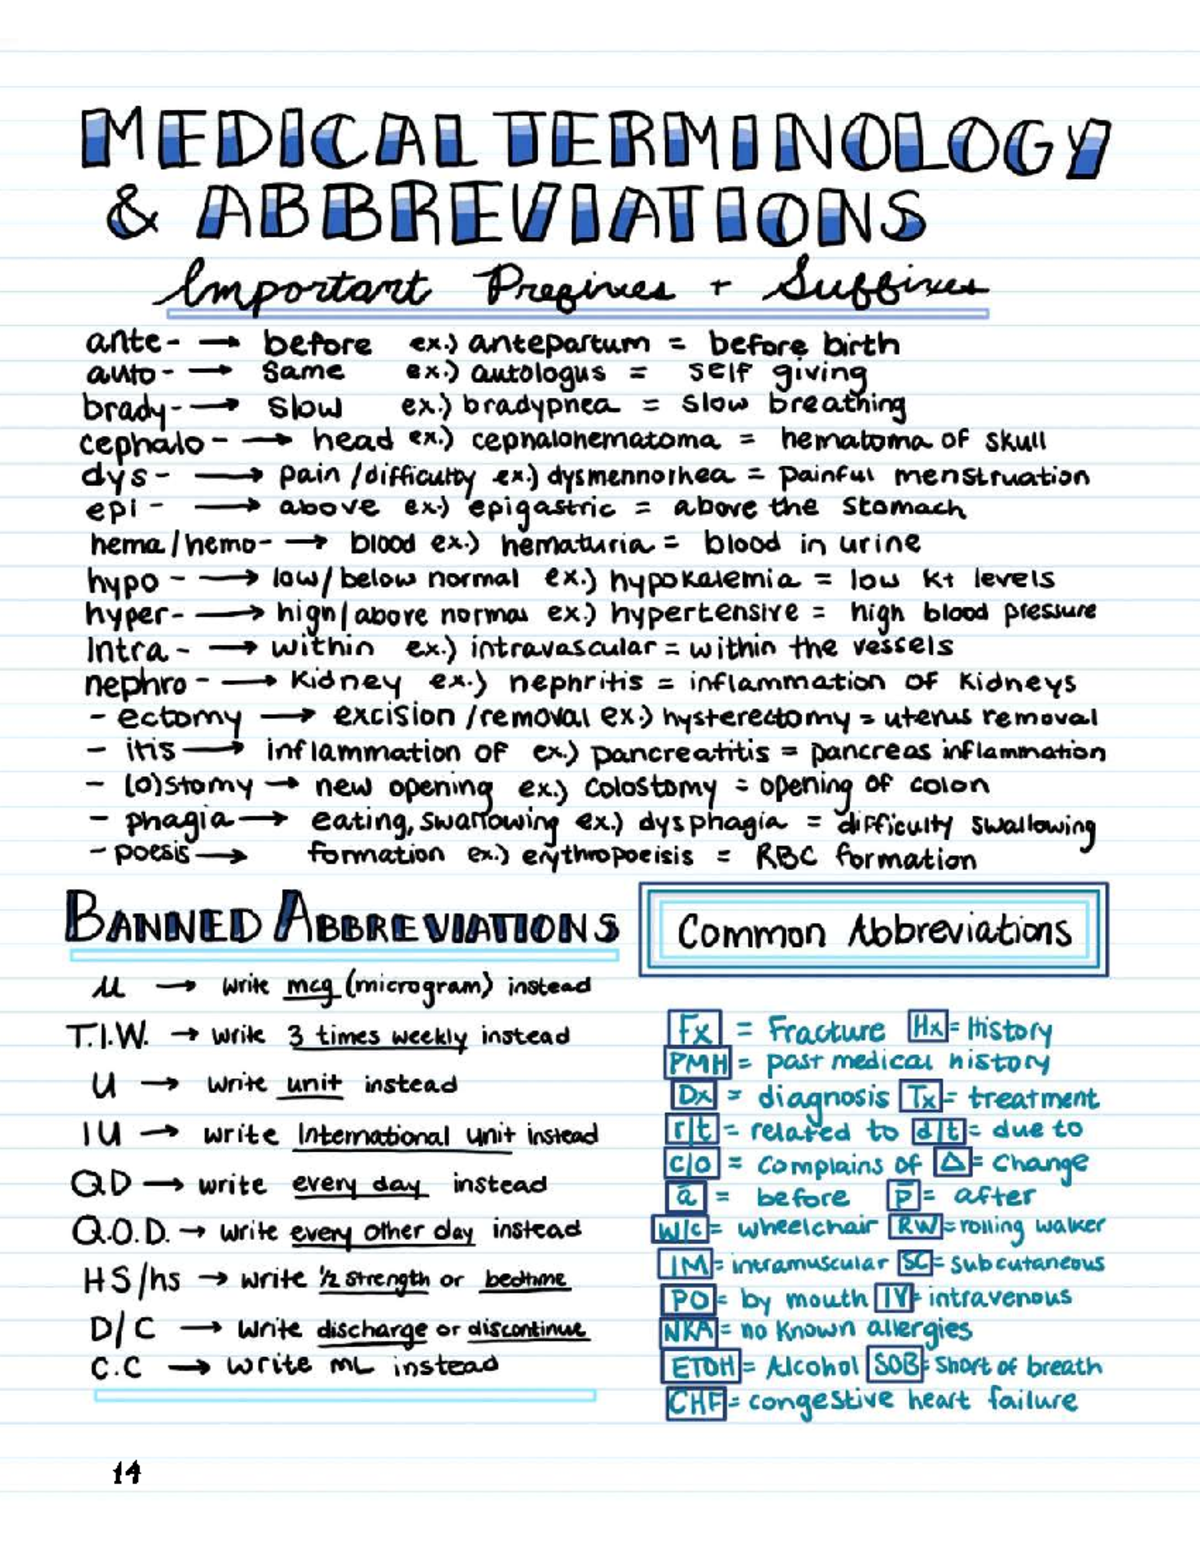 MEDICAL TERMINOLOGY
& ABBREVIATIONS
Important Prefixes + Suffixes
ante- → before ex.) antepartum = before birth
auto- → same ex.) autologus = self giving
brady- → slow ex.) bradypnea = slow breathing
cephalo- → head ex.) cephalohematoma = hematoma of skull
dys- → pain/difficulty ex.) dysmennorhea = painful menstruation
epi- → above ex.) epigastric = above the stomach
hema/hemo- → blood ex.) hematuria = blood in urine
hypo- → low/below normal ex.) hypokalemia = low K+ levels
hyper- → high/above normal ex.) hypertensive = high blood pressure
Intra- → within ex.) intravascular = within the vessels
nephro- → kidney ex.) nephritis = inflammation of kidneys
-ectomy → excision/removal ex.) hysterectomy = uterus removal
-itis → inflammation of ex.) pancreatitis = pancreas inflammation
-(o)stomy → new opening ex.) colostomy = opening of colon
-phagia → eating, swallowing ex.) dysphagia = difficulty swallowing
-poesis → formation ex.) erythropoeisis = RBC formation
BANNED ABBREVIATIONS
μ → write mcg (microgram) instead
T.I.W. → write 3 times weekly instead
U → write unit instead
IU → write International unit instead
QD → write every day instead
Q.O.D. → write every other day instead
HS/hs → write ½ strength or bedtime
D/C → write discharge or discontinue
C.C → write mL instead
Common Abbreviations
Fx = Fracture Hx = History
PMH = past medical history
Dx = diagnosis Tx = treatment
r/t = related to d/t = due to
c/o = complains of Δ = change
ā = before p̄ = after
W/c = wheelchair RW = rolling walker
IM = intramuscular SC = subcutaneous
PO = by mouth IV = intravenous
NKA = no known allergies
ETOH = Alcohol SOB = Short of breath
CHF = congestive heart failure
14